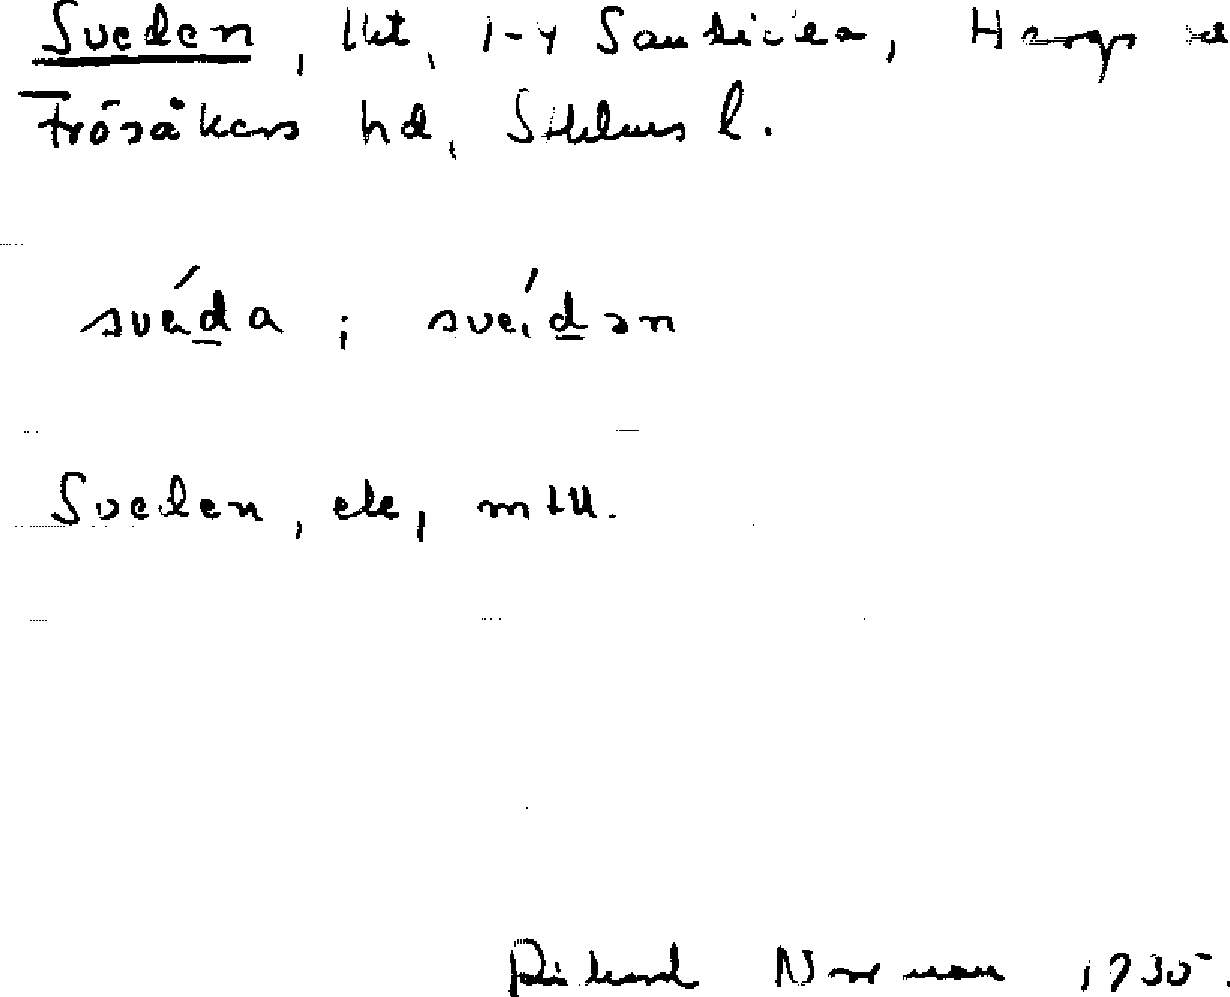 Sveden, lht, 1-4 Sandika, Hargs sn
Frösåkers hd, Sthlms l.
svéda ; svédən
Sveden, ek,
Rikard Norrman 1935.